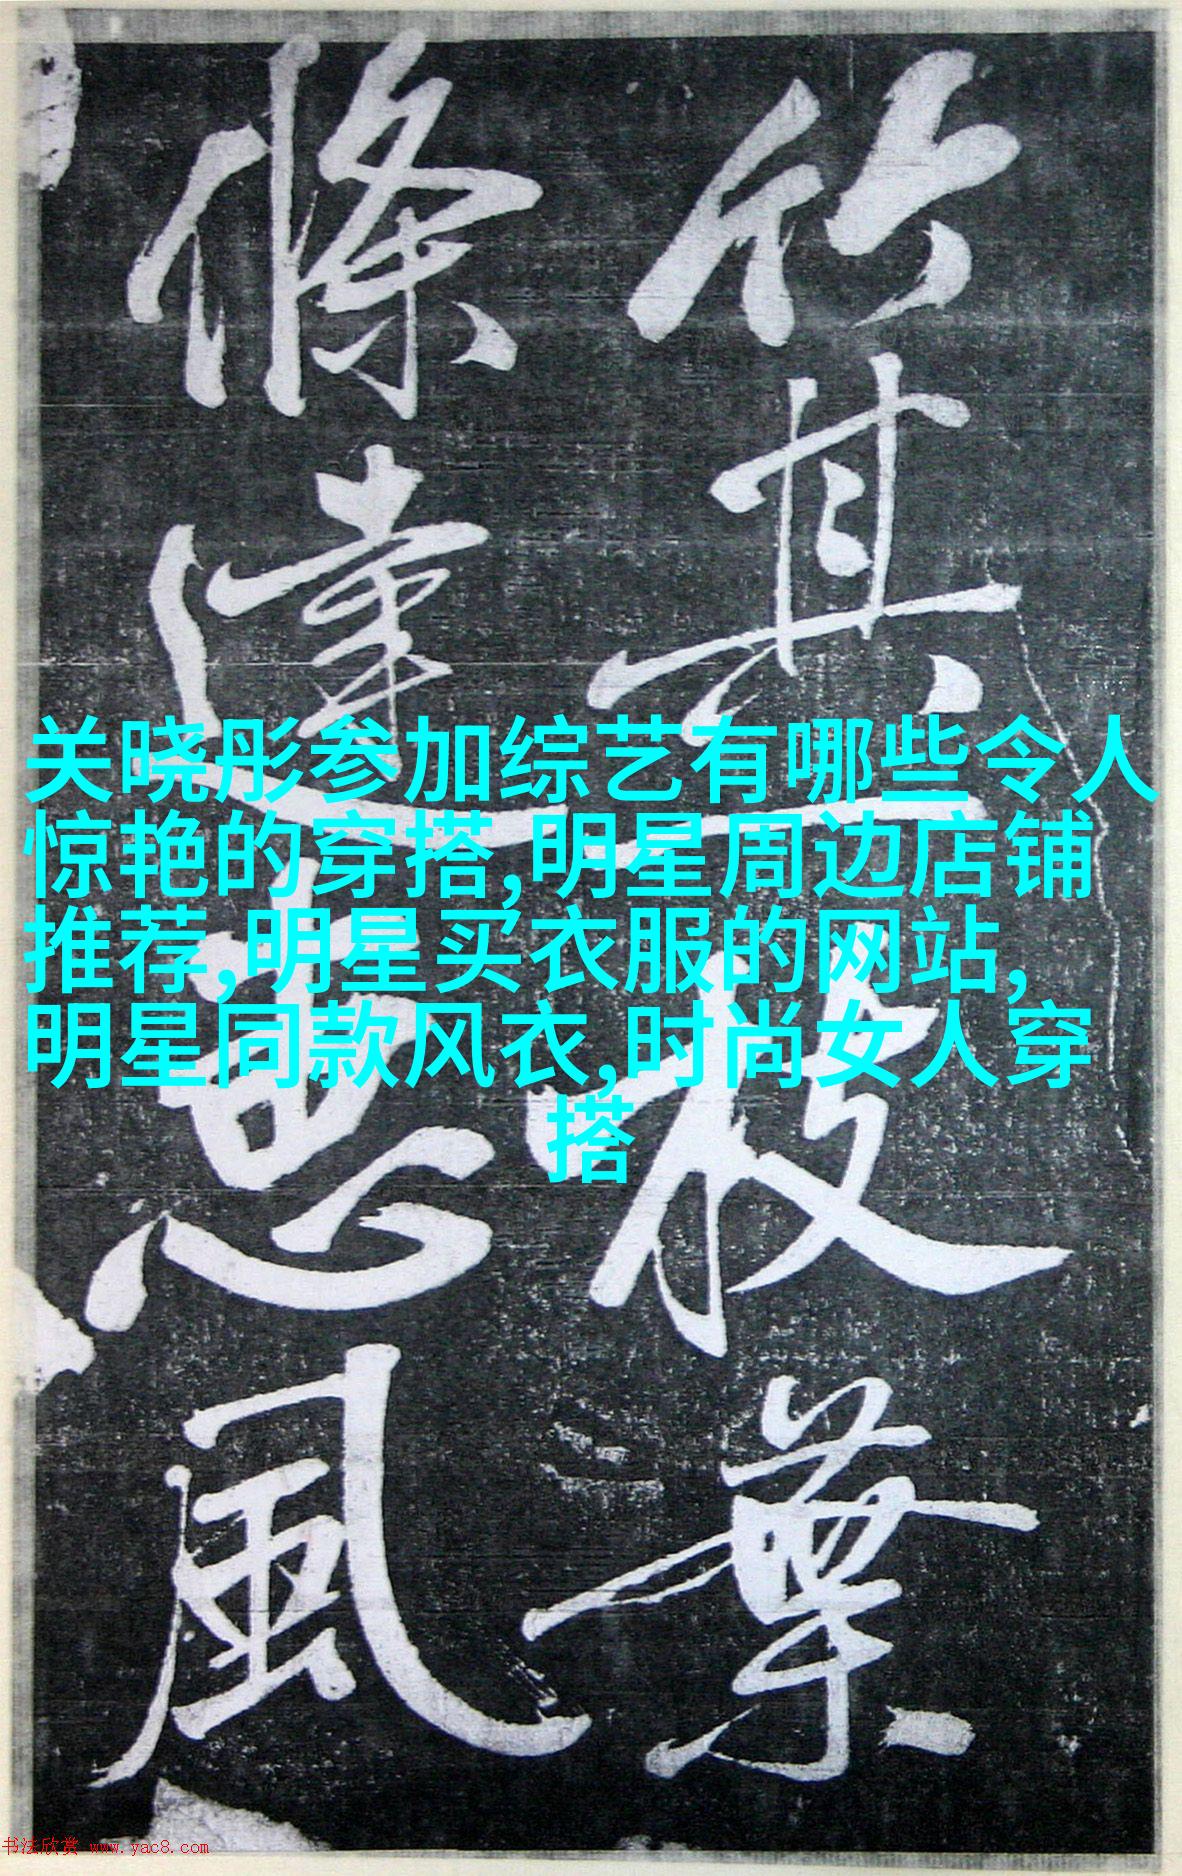 竹其枝葉
條達惠風
关晓彤参加综艺有哪些令人
惊艳的穿搭,明星周边店铺
推荐,明星买衣服的网站,
明星同款风衣,时尚女人穿
搭
书法欣赏 www.yac8.com